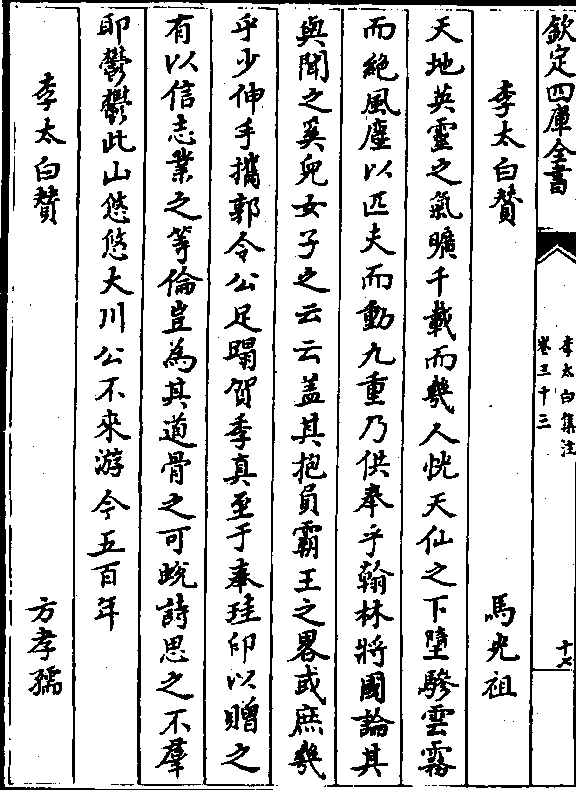 欽定四庫全書
李太白集注
卷三十三
十七
李太白贊 馬光祖
天地英靈之氣曠千載而幾人恍天仙之下墮驂雲霧
而絶風塵以匹夫而動九重乃供奉乎翰林將國論其
與聞之奚兒女子之云云盖其抱負霸王之畧或庶幾
乎少伸手攜郭令公足躢賀季真至于奉珪印以贈之
有以信志業之等倫豈為其道骨之可蛻詩思之不羣
耶鬱鬱此山悠悠大川公不來游今五百年
李太白贊 方孝孺